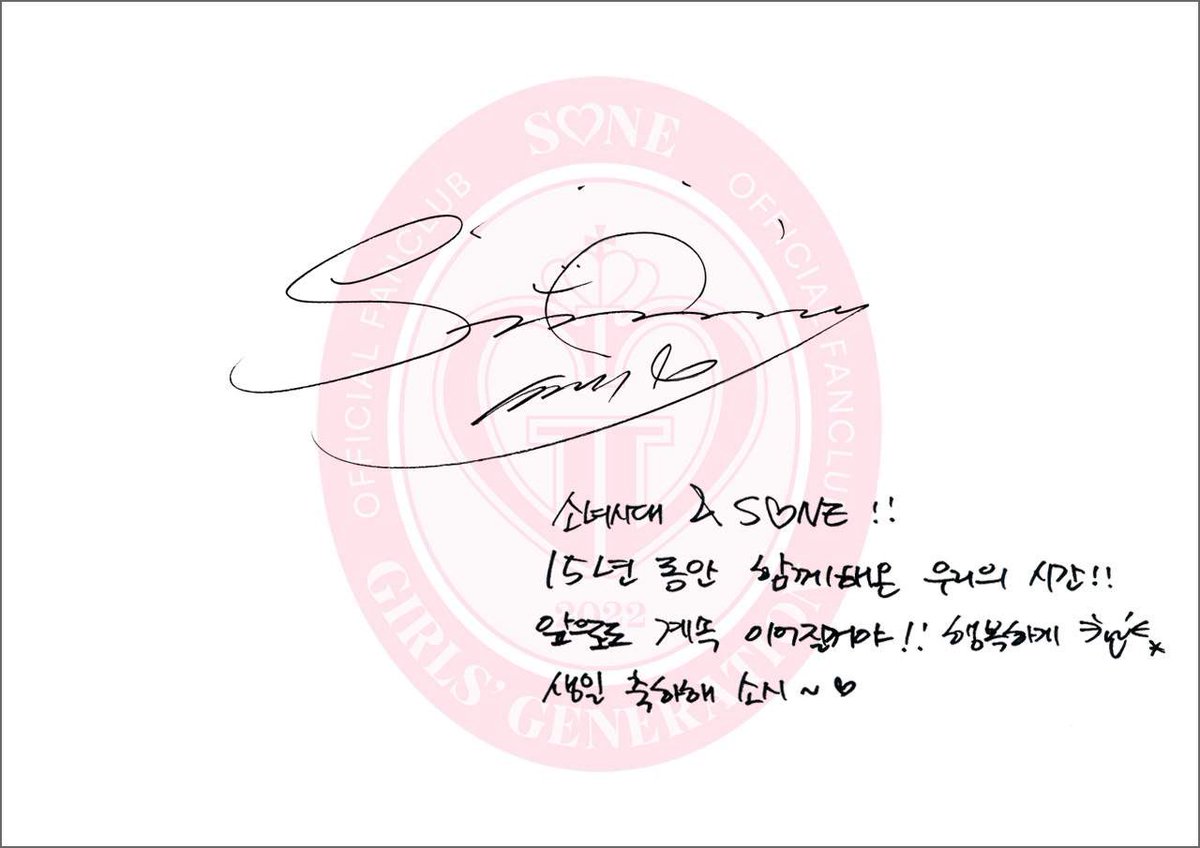 S♡NE
OFFICIAL FANCLUB
OFFICIAL FANCLUB
소녀시대 & S♡NE !!
15년 동안 함께해온 우리의 시간!!
앞으로 계속 이어질거야!! 행복하게
생일 축하해 소시~♡
2022
GIRLS' GENERATION